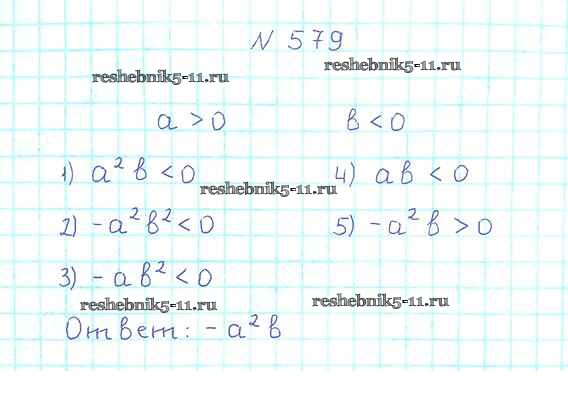 № 579
reshebnik5-11.ru
reshebnik5-11.ru
a > 0
в < 0
1) a² в < 0
reshebnik5-11.ru
4) aв < 0
2) -a² в² < 0
5) -a² в > 0
3) -aв² < 0
reshebnik5-11.ru
reshebnik5-11.ru
Ответ: -a² в